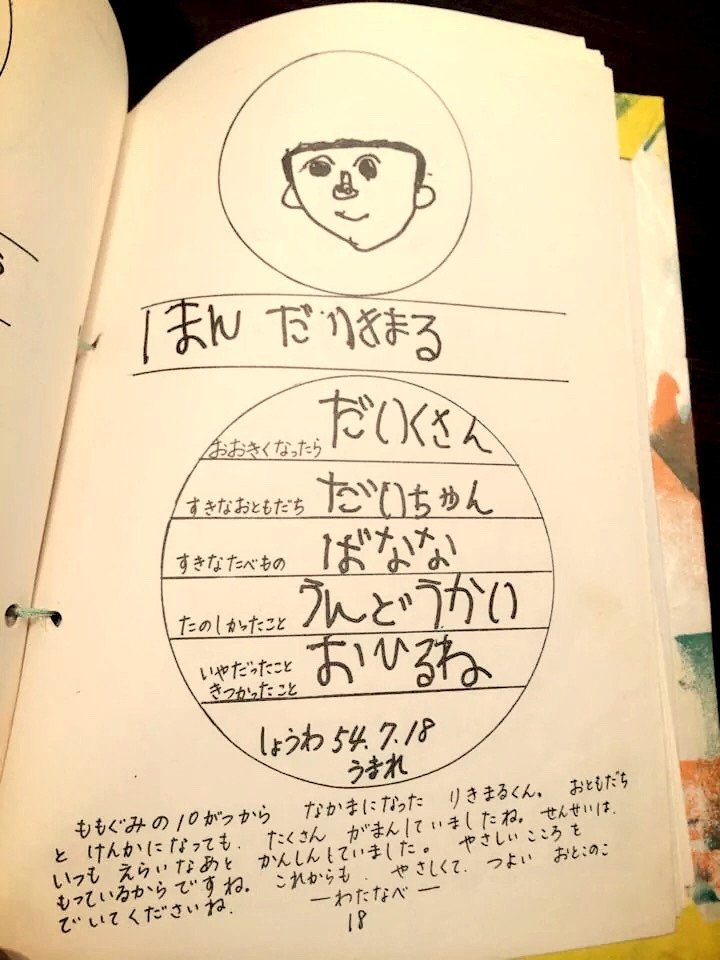 ほんだ りきまる
おおきくなったら だいくさん
すきなおともだち だいちゃん
すきなたべもの ばなな
たのしかったこと うんどうかい
いやだったこと
きつかったこと おひるね
しょうわ 54.7.18
うまれ
ももぐみの10がつから なかまになった りきまるくん。 おともだち
と けんかになっても. たくさん がまんしていましたね。 せんせいは.
いつも えらいなあと かんしんしていました。 やさしいこころを
もっているからですね。 これからも. やさしくて. つよい おとこのこ
でいてくださいね.
ーわたなべー
18